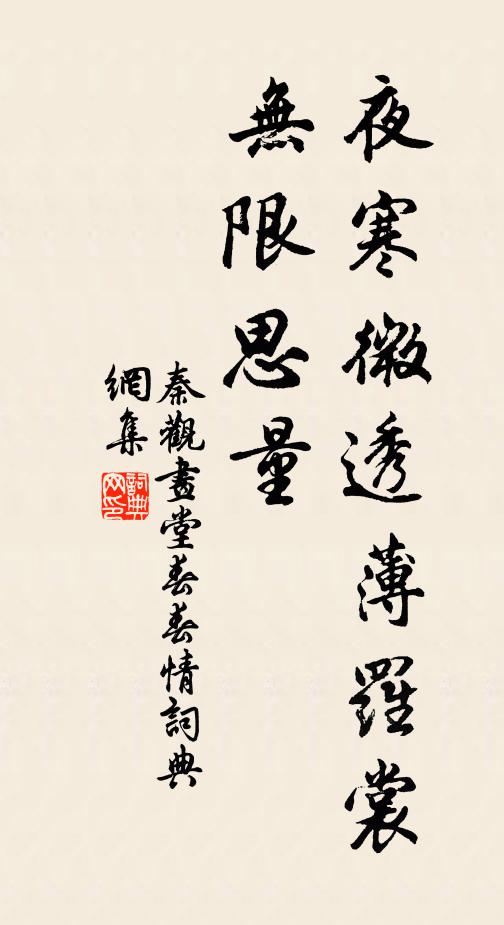 夜寒微透薄羅裳
無限思量
秦觀畫堂春春情詞典
網集
詞典网印